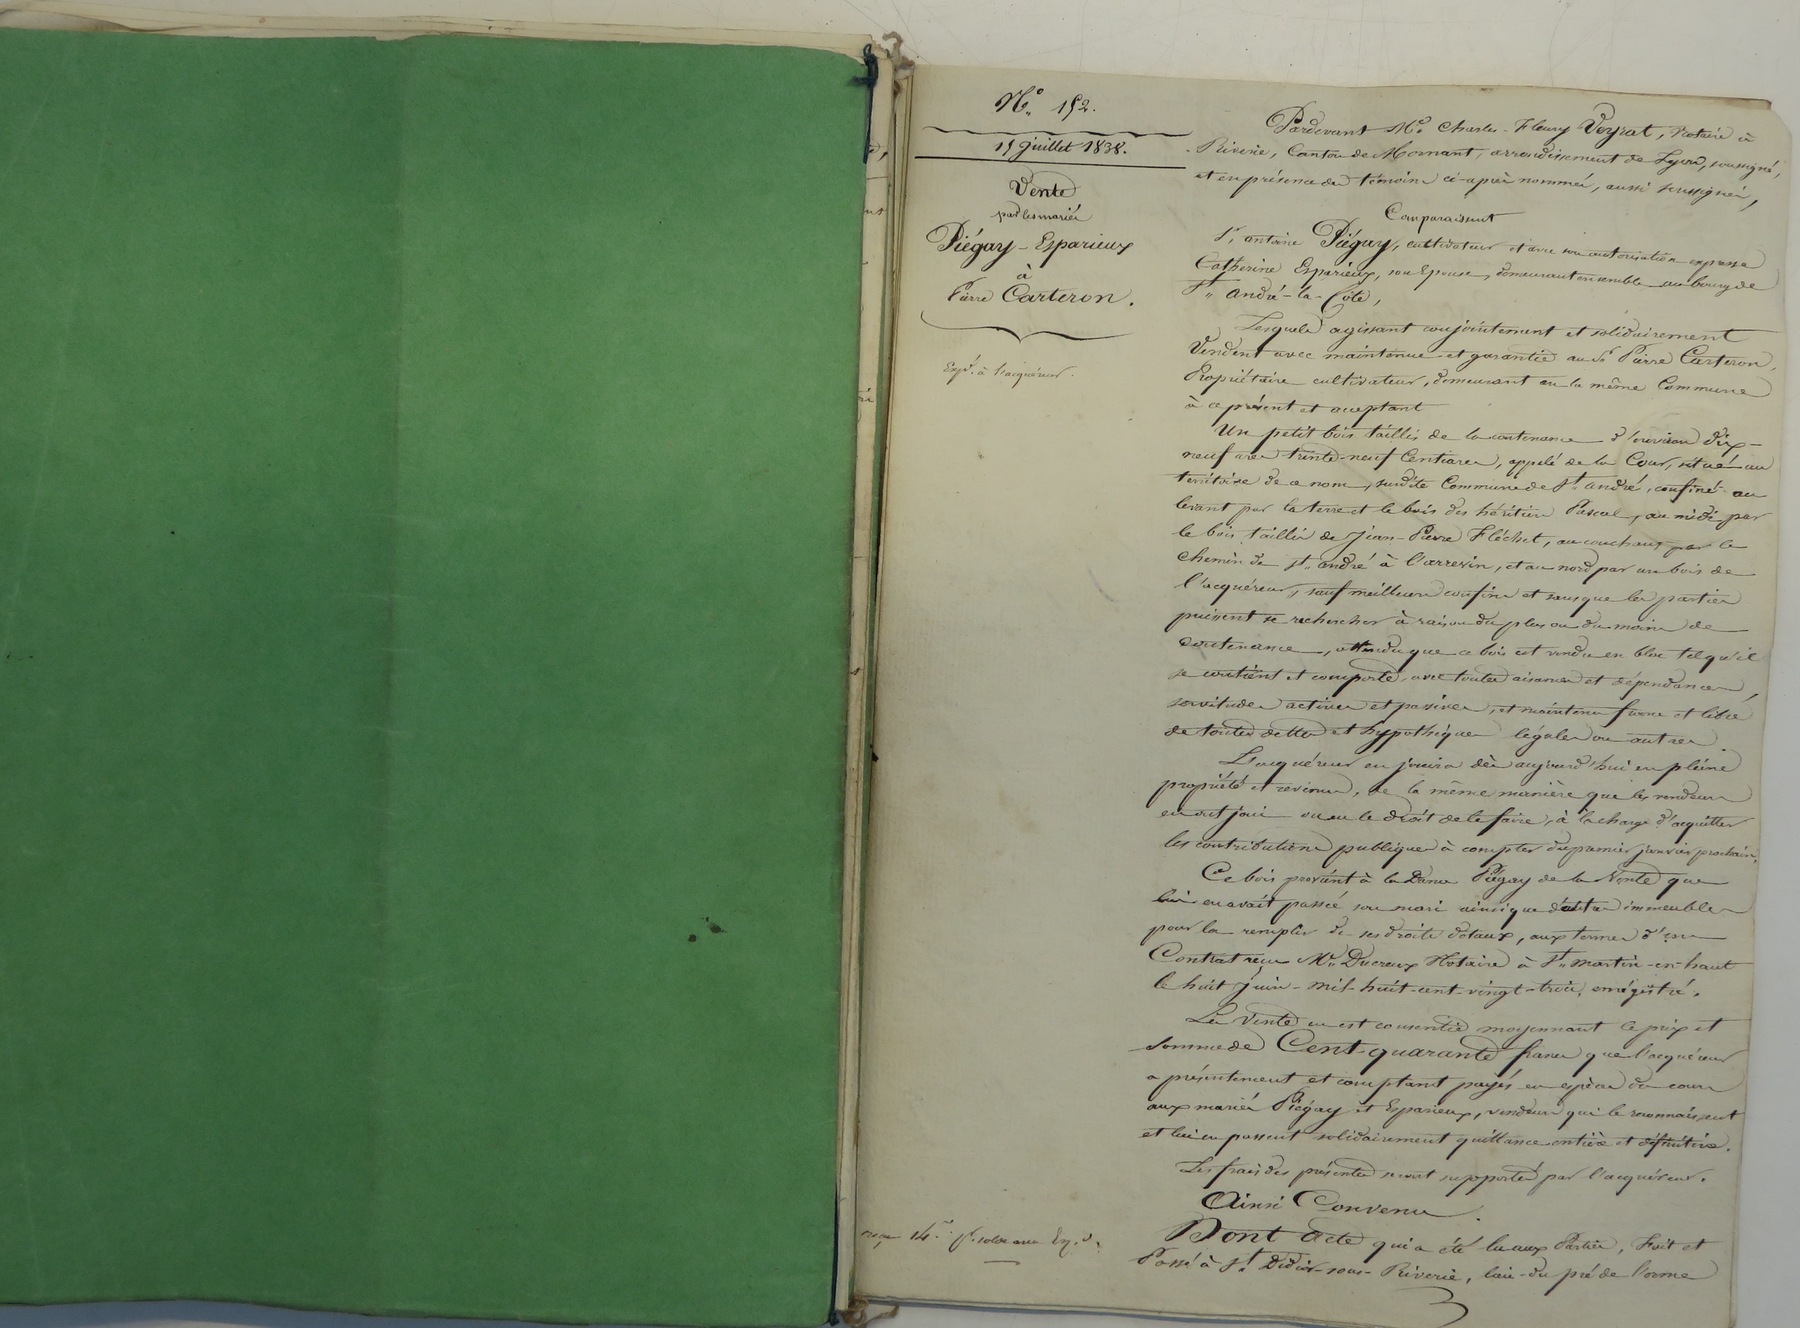 N.° 152.
15 Juillet 1838.
Vente
par les mariés
Piégay - Esparieux
à
Pierre Carteron.
Exp.d à l'acquéreur.
Pardevant M.e Charles-Fleury Veyrat, Notaire à
Riverie, Canton de Mornant, arrondissement de Lyon, soussigné,
et en présence des témoins ci-après nommés, aussi soussignés,
Comparaissent
S.r antoine Piégay, cultivateur et avec son autorisation expresse
Catherine Esparieux, son Epouse, demeurant ensemble au bourg de
S.t andré-la-Côte,
Lesquels agissant conjointement et solidairement
Vendent avec maintenue et garantie au S.r Pierre Carteron,
Propriétaire cultivateur, demeurant en la même Commune
à ce présent et acceptant
Un petit bois taillis de la contenance d'environ dix-
neuf ares trente-neuf Centiares, appelé de la Cour, situé au
territoire de ce nom, susdite Commune de S.t andré, confiné au
levant par la terre et le bois des héritiers Pascal, au midi par
le bois taillis de Jean-Pierre Fléchet, au couchant par le
chemin de S.t andré à l'arrevin, et au nord par un bois de
l'acquéreur, sauf meilleurs confins et sans que les parties
puissent se rechercher à raison du plus ou du moins de
contenance, attendu que ce bois est vendu en bloc tel qu'il
se contient et comporte, avec toutes aisances et dépendances,
servitudes actives et passives, et maintenu franc et libre
de toutes dettes et hypothèques légales ou autres.
L'acquéreur en jouira dès aujourd'hui en pleine
propriété et revenus, de la même manière que les vendeurs
en ont joui ou eu le droit de le faire, à la charge d'acquitter
les contributions publiques à compter du premier janvier prochain.
Ce bois provient à la Dame Piégay de la Vente que
lui en avait passée son mari ainsi que d'autres immeubles
pour la remplir de ses droits dotaux, aux termes d'un
Contrat reçu M.e Ducreux Notaire à S.t martin-en-haut
le huit juin-mil-huit-cent-vingt-trois, enregistré.
La Vente en est consentie moyennant le prix et
somme de Cent-quarante francs que l'acquéreur
a présentement et comptant payés en espèces du cours
aux mariés Piégay et Esparieux, vendeurs qui le reconnaissent
et lui en passent solidairement quittance entière et définitive.
Les frais des présentes seront supportés par l'acquéreur.
Ainsi Convenu.
Dont Acte qui a été lu aux Parties, Fait et
Passé à S.t Didier-sous-Riverie, lieu du pré de l'orme
reçu 14.f p.r solde avec Exp.d.